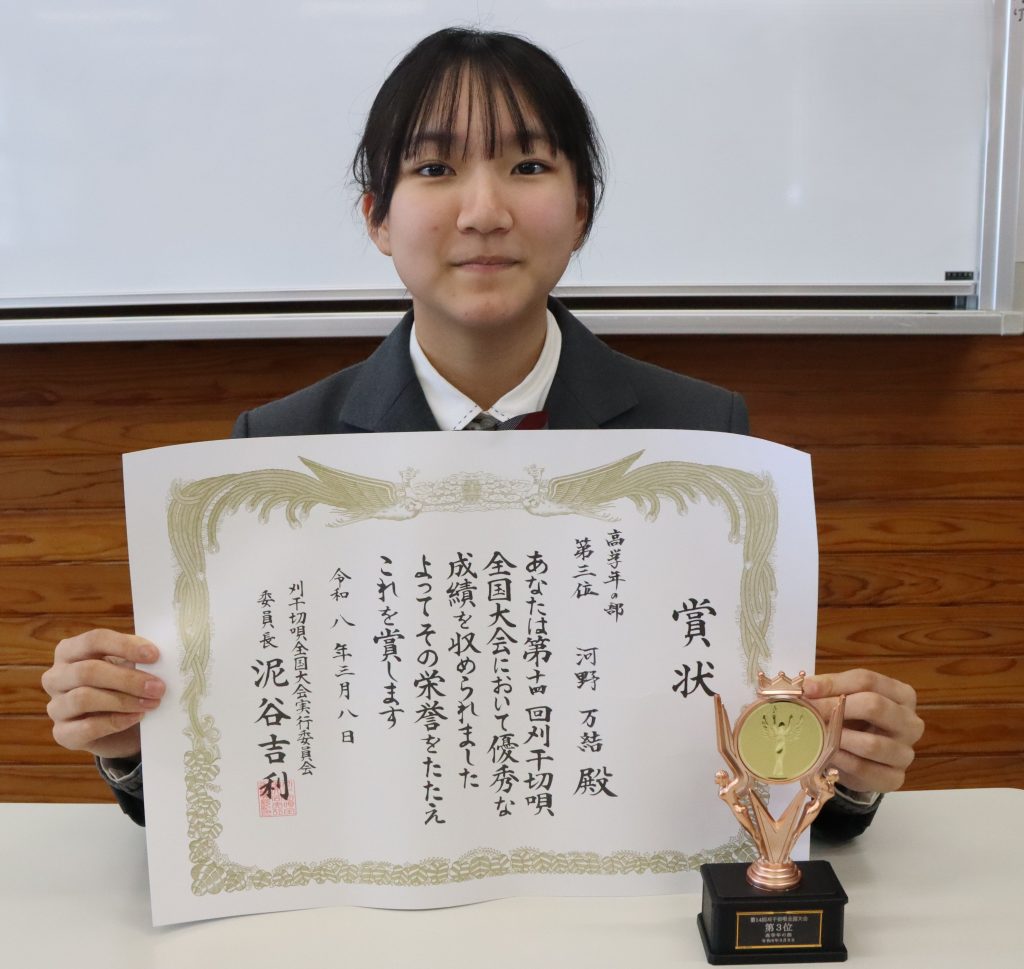 賞状
高学年の部
第三位　河野　万結　殿
あなたは第十四回刈干切唄
全国大会において優秀な
成績を収められました
よってその栄誉をたたえ
これを賞します
令和八年三月八日
刈干切唄全国大会実行委員会
委員長　泥谷吉利
第14回刈干切唄全国大会
第3位
高学年の部
令和8年3月8日